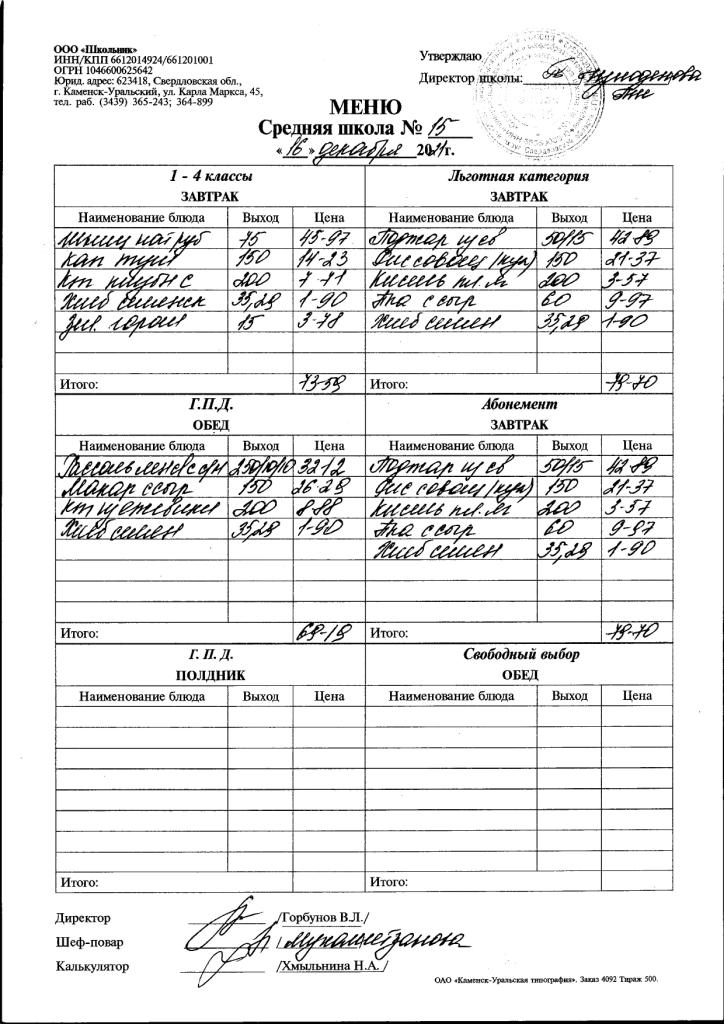 ООО «Школьник»
ИНН/КПП 6612014924/661201001
ОГРН 1046600625642
Юрид. адрес: 623418, Свердловская обл.,
г. Каменск-Уральский, ул. Карла Маркса, 45,
тел. раб. (3439) 365-243; 364-899
Утверждаю
Директор школы:
МЕНЮ
Средняя школа № 15
«16» декабря 2021г.
1 - 4 классы
ЗАВТРАК
Наименование блюда Выход Цена
75 45-97
Кап туш 150 14-23
Кт 200 7-71
Хлеб 35,29 1-90
Зел. горош 15 3-78
Итого: 73-59
Льготная категория
ЗАВТРАК
Наименование блюда Выход Цена
Поджар 50/15 42-89
Рис 150 21-37
Кисель пл.яг 200 3-57
с сыр 60 9-97
Хлеб 35,29 1-90
Итого: 79-70
Г.П.Д.
ОБЕД
Наименование блюда Выход Цена
250/10/10 32-12
Макар с сыр 150 26-29
Кт 200 8-88
Хлеб 35,29 1-90
Итого: 69-19
Абонемент
ЗАВТРАК
Наименование блюда Выход Цена
Поджар 50/15 42-89
Рис 150 21-37
Кисель пл.яг 200 3-57
с сыр 60 9-97
Хлеб 35,29 1-90
Итого: 79-70
Г. П. Д.
ПОЛДНИК
Наименование блюда Выход Цена
Итого:
Свободный выбор
ОБЕД
Наименование блюда Выход Цена
Итого:
Директор /Горбунов В.Л./
Шеф-повар / Мухаметзанова
Калькулятор /Хмыльнина Н.А. /
ОАО «Каменск-Уральская типография». Заказ 4092 Тираж 500.